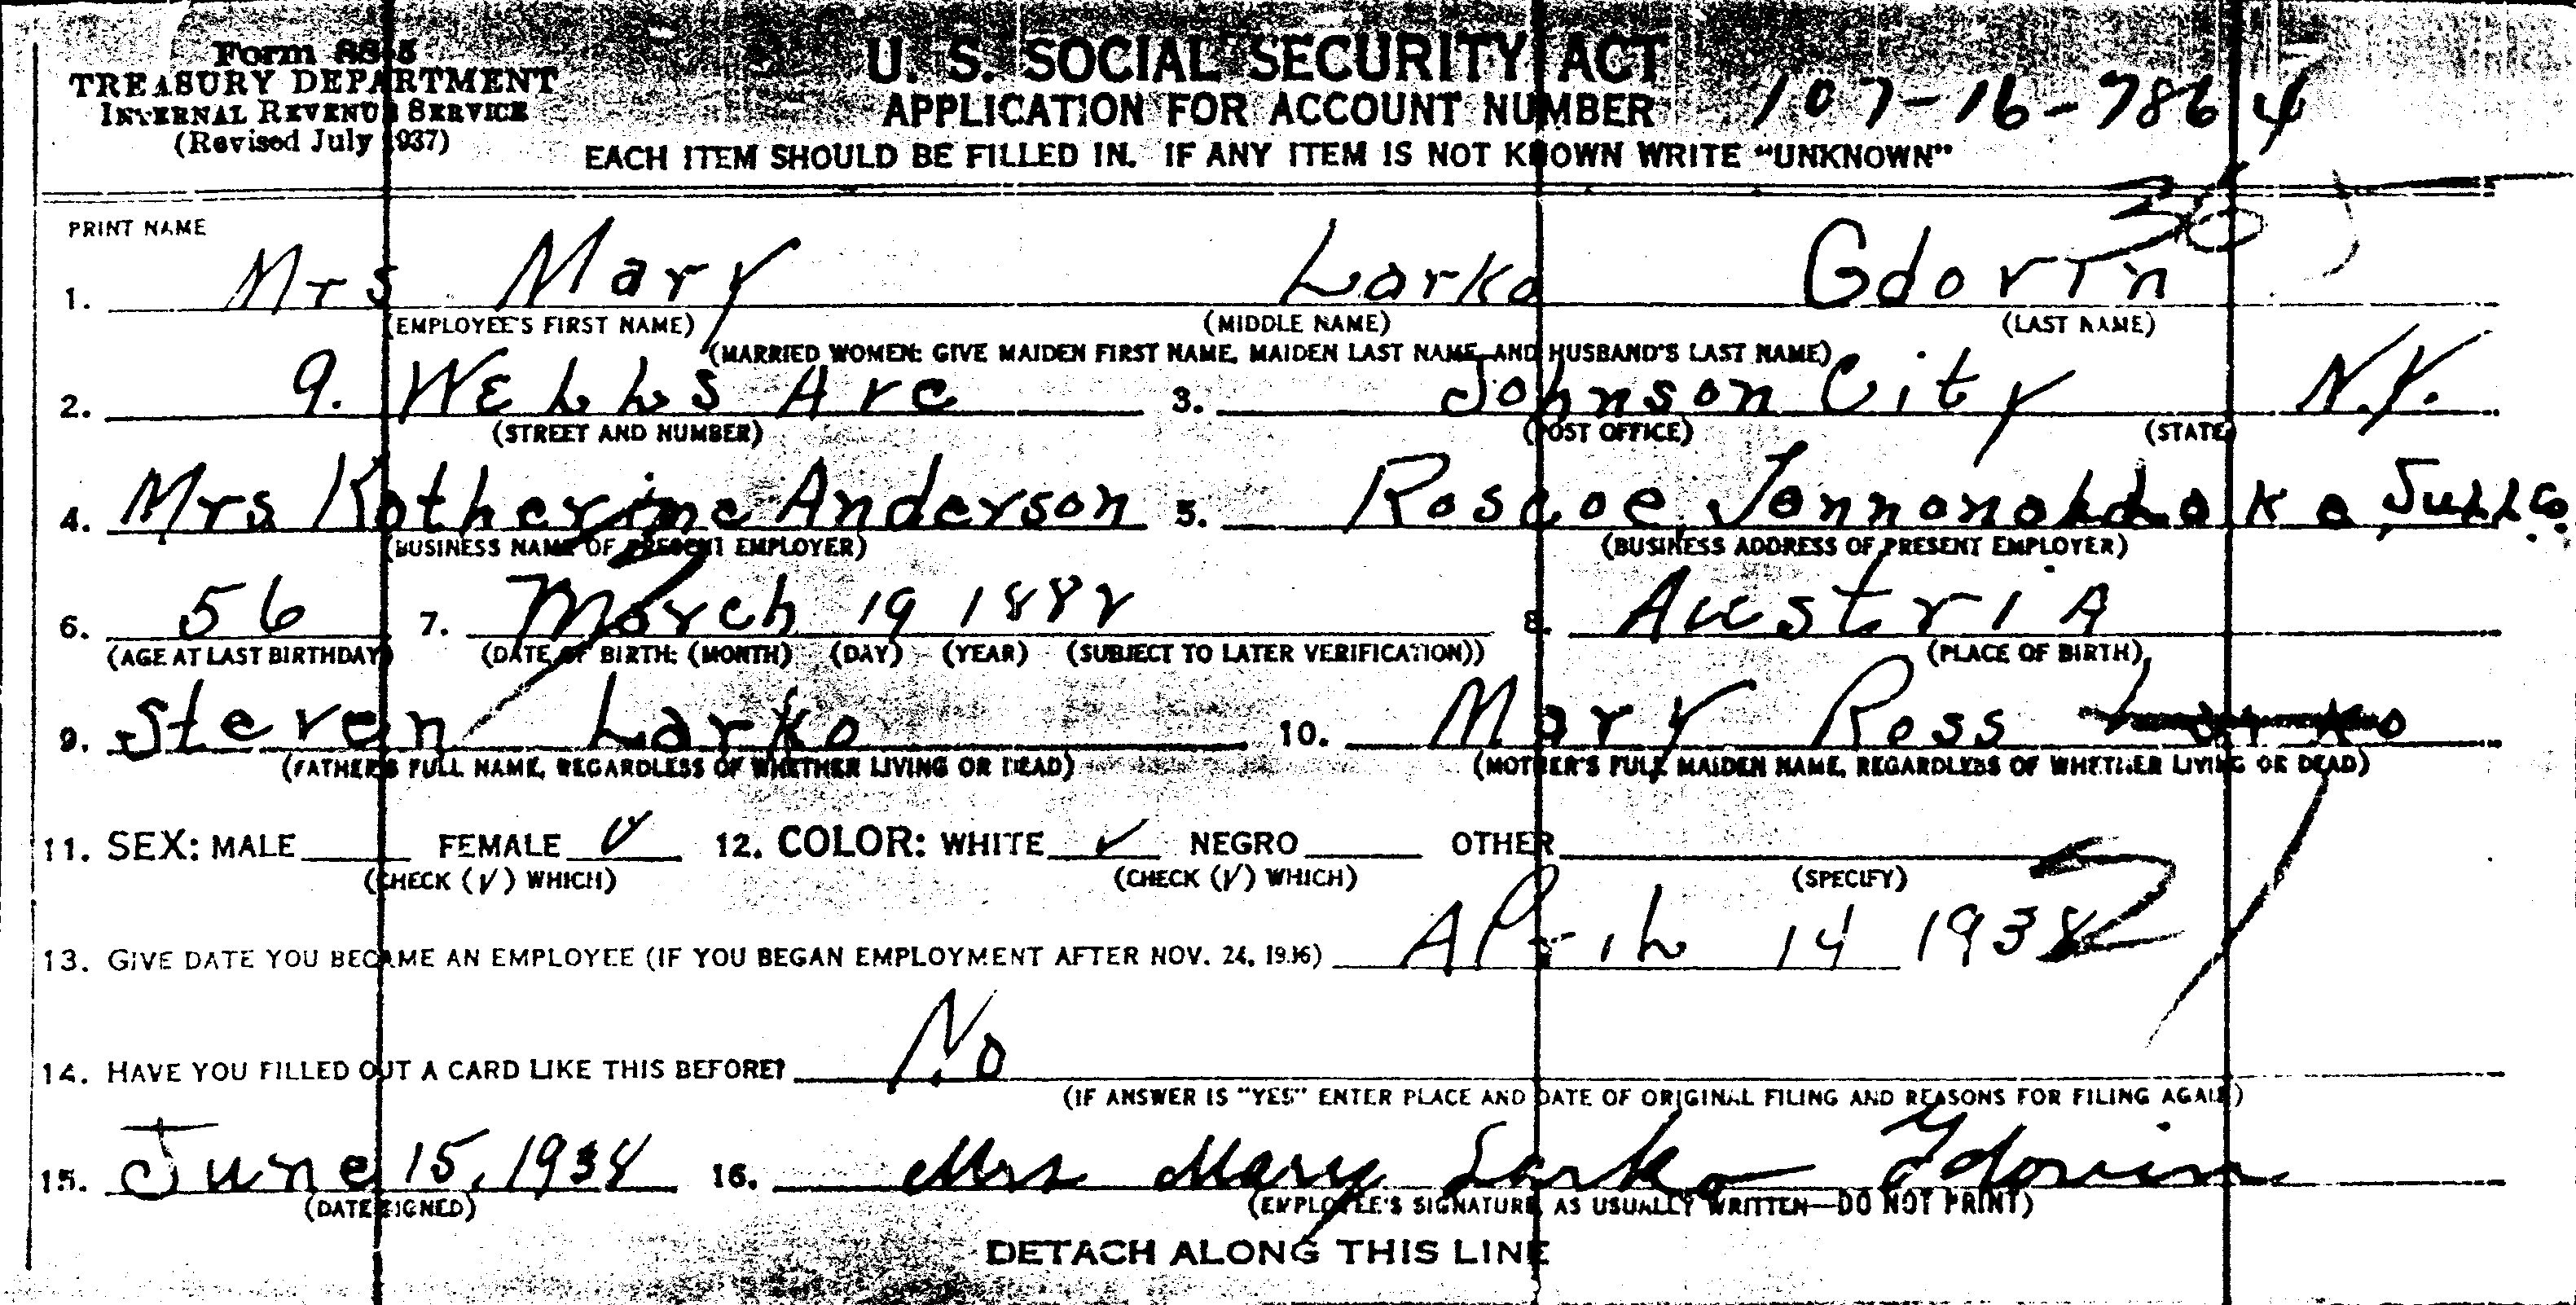 Form SS-5
TREASURY DEPARTMENT
INTERNAL REVENUE SERVICE
(Revised July 1937)
U. S. SOCIAL SECURITY ACT
APPLICATION FOR ACCOUNT NUMBER
107-16-7864
EACH ITEM SHOULD BE FILLED IN. IF ANY ITEM IS NOT KNOWN WRITE "UNKNOWN"
PRINT NAME
1. Mrs Mary Larko Gdovin
(EMPLOYEE'S FIRST NAME) (MIDDLE NAME) (LAST NAME)
(MARRIED WOMEN: GIVE MAIDEN FIRST NAME, MAIDEN LAST NAME, AND HUSBAND'S LAST NAME)
2. 9. WELLS Ave 3. Johnson City N.Y.
(STREET AND NUMBER) (POST OFFICE) (STATE)
4. Mrs Katherine Anderson 5. Roscoe, Tennanah Lake Sull Co.
(BUSINESS NAME OF PRESENT EMPLOYER) (BUSINESS ADDRESS OF PRESENT EMPLOYER)
6. 56 7. March 19 1882 8. Austria
(AGE AT LAST BIRTHDAY) (DATE OF BIRTH: (MONTH) (DAY) (YEAR) (SUBJECT TO LATER VERIFICATION)) (PLACE OF BIRTH)
9. Steven Larko 10. Mary Ross Larko
(FATHER'S FULL NAME, REGARDLESS OF WHETHER LIVING OR DEAD) (MOTHER'S FULL MAIDEN NAME, REGARDLESS OF WHETHER LIVING OR DEAD)
11. SEX: MALE FEMALE ✓ 12. COLOR: WHITE ✓ NEGRO OTHER
(CHECK (√) WHICH) (CHECK (√) WHICH) (SPECIFY)
13. GIVE DATE YOU BECAME AN EMPLOYEE (IF YOU BEGAN EMPLOYMENT AFTER NOV. 24, 1936) APriL 14 1938
14. HAVE YOU FILLED OUT A CARD LIKE THIS BEFORE? No
(IF ANSWER IS "YES" ENTER PLACE AND DATE OF ORIGINAL FILING AND REASONS FOR FILING AGAIN)
15. June 15, 1938 16. Mrs Mary Larko Gdovin
(DATE SIGNED) (EMPLOYEE'S SIGNATURE, AS USUALLY WRITTEN—DO NOT PRINT)
DETACH ALONG THIS LINE